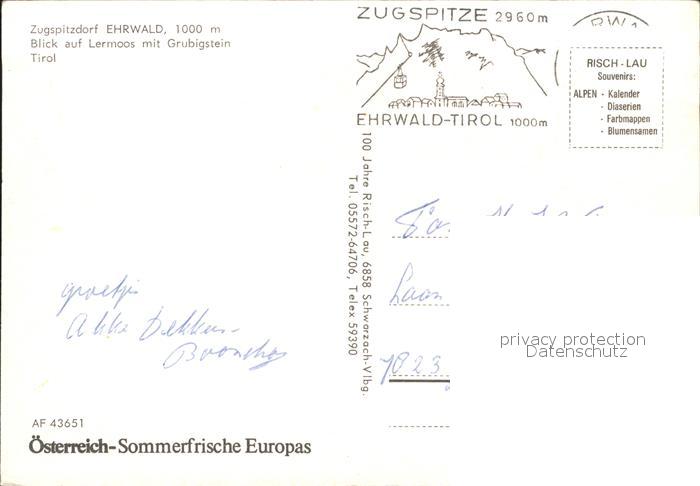 Zugspitzdorf EHRWALD, 1000 m
Blick auf Lermoos mit Grubigstein
Tirol
ZUGSPITZE 2960m
EHRWALD-TIROL 1000m
RISCH-LAU
Souvenirs:
ALPEN - Kalender
- Diaserien
- Farbmappen
- Blumensamen
100 Jahre Risch-Lau, 6858 Schwarzach-Vlbg.
Tel. 05572-64706, Telex 59390
groetjes
Akke Dekker-
Fa.
Laan
7823
privacy protection
Datenschutz
AF 43651
Österreich-Sommerfrische Europas